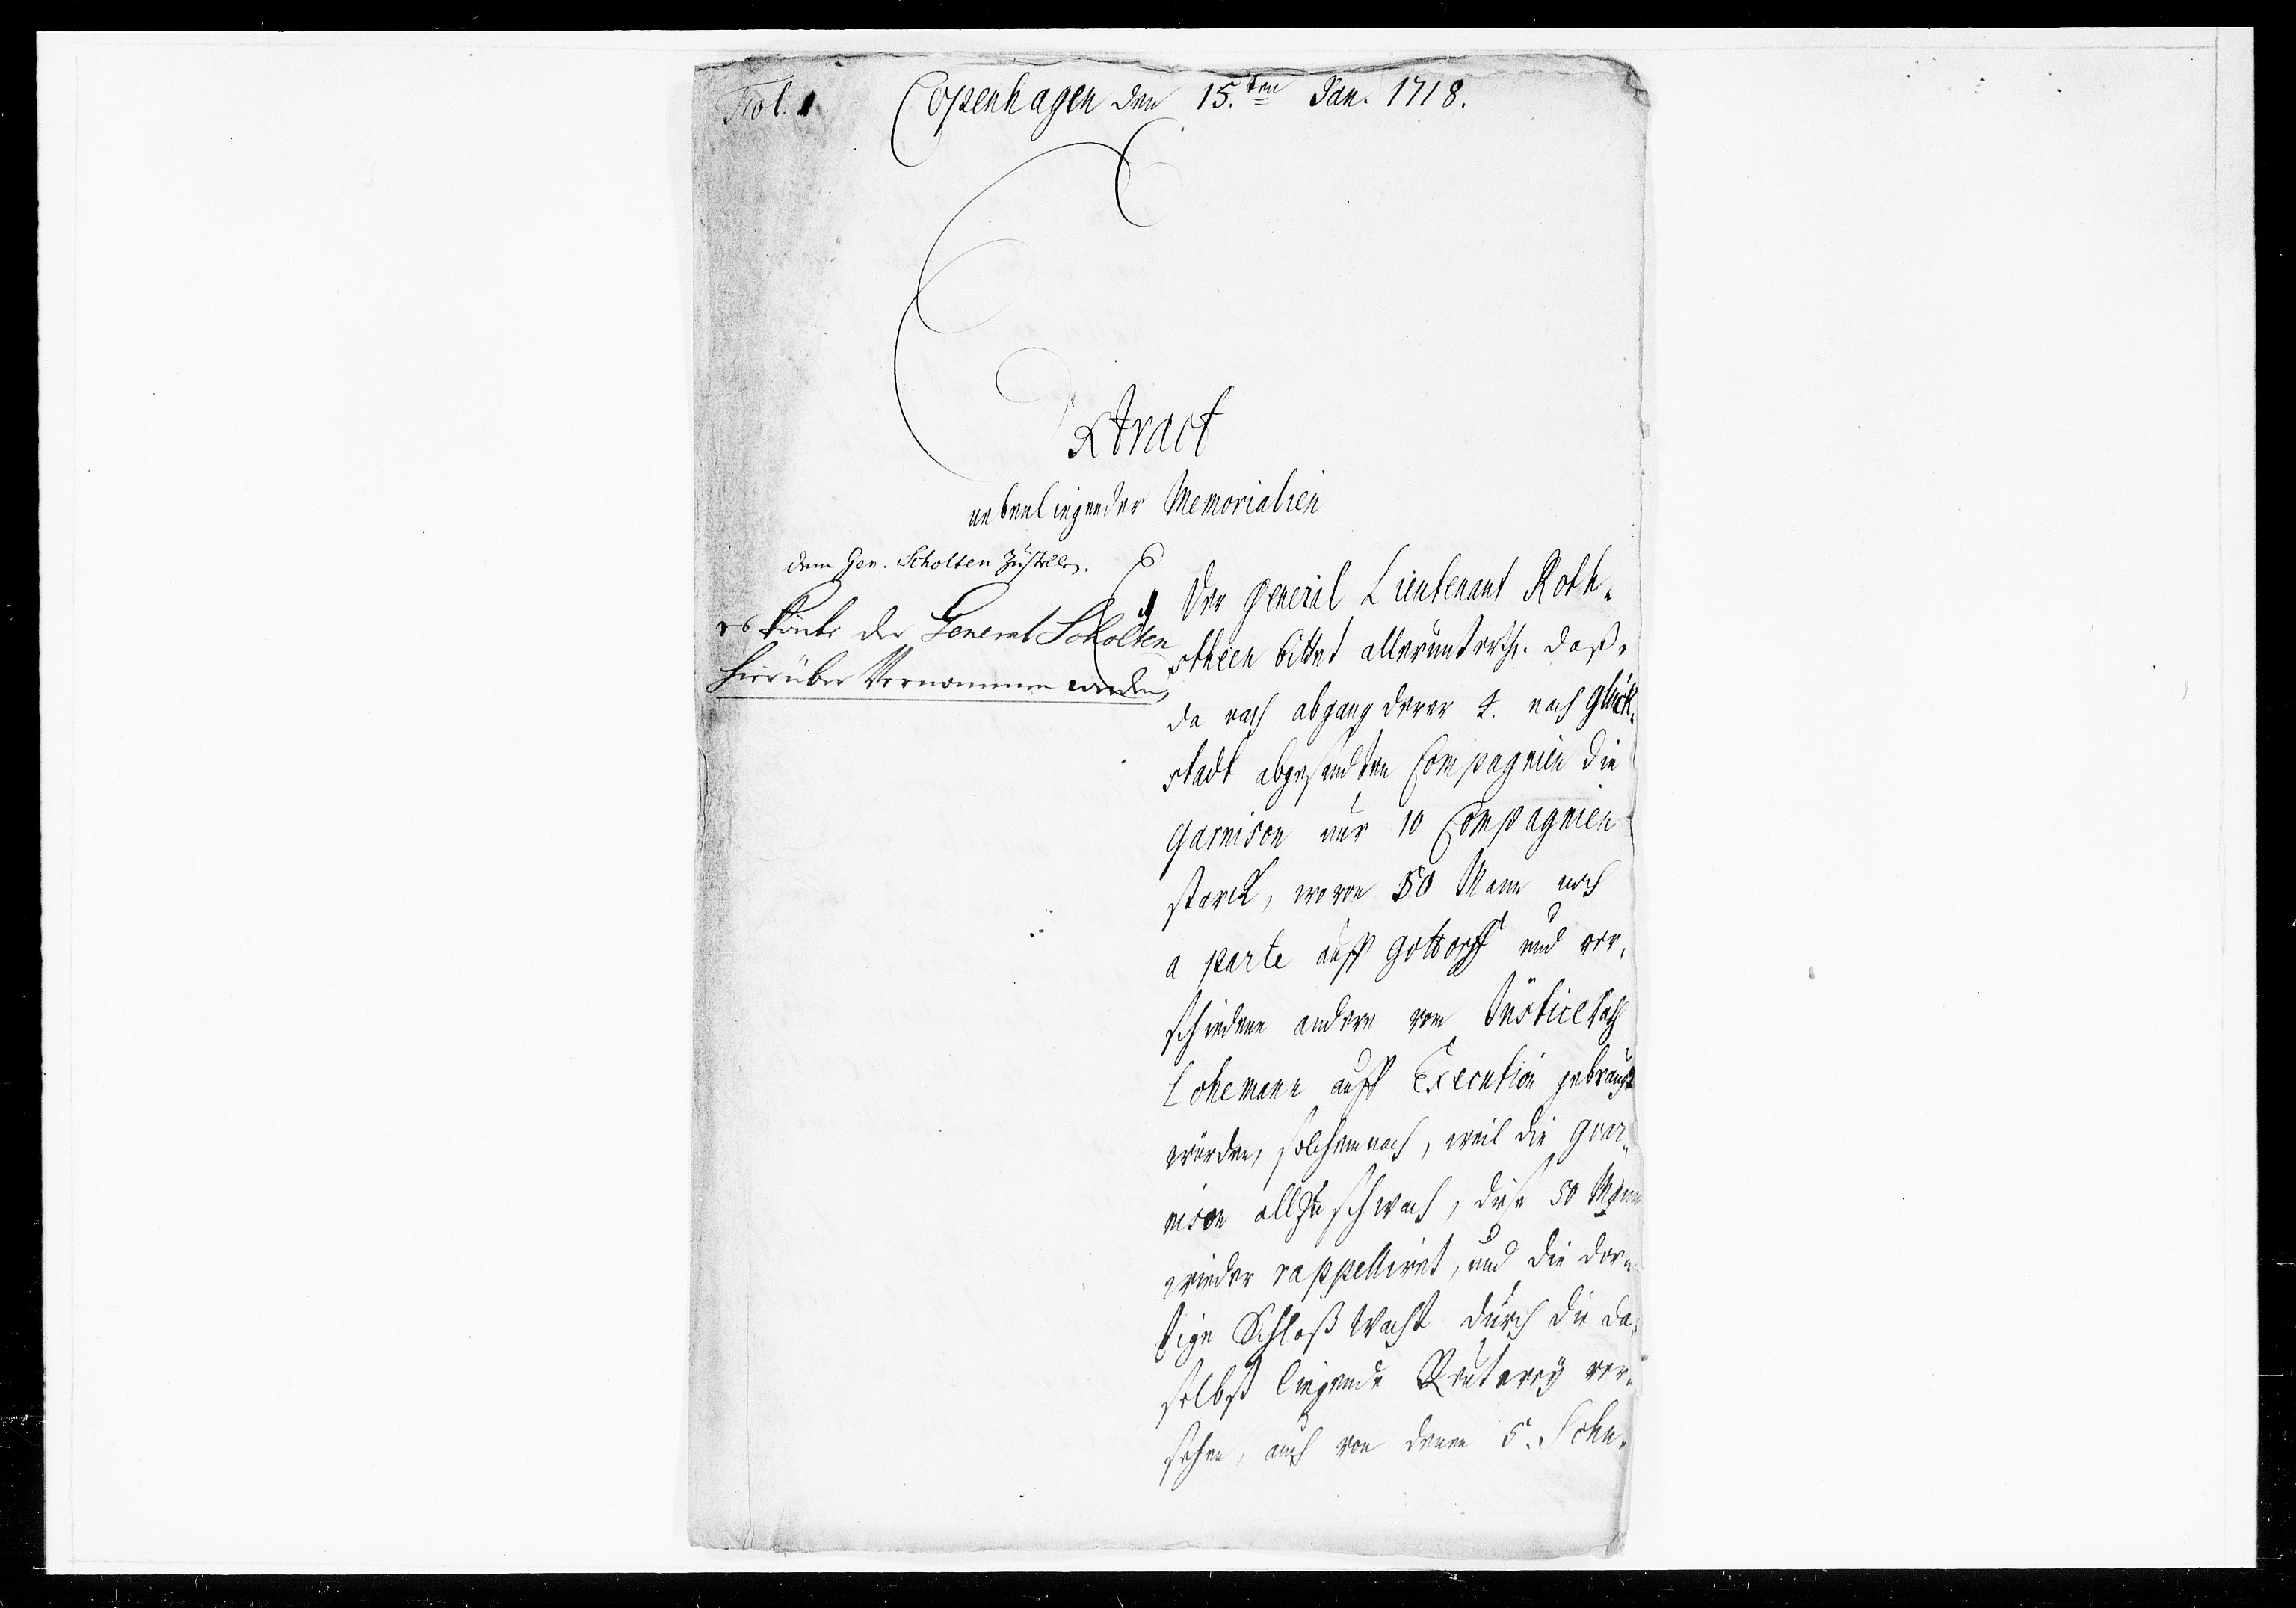 Fol. 1.
Copenhagen den 15.ten Jan. 1718.
Extract
nebenliegender Memorialien
dem Gen. Scholten zustellen.
es könte der General Scholten
hierüber Vernommen werden,
1
Der General Lieutenant Roth-
stheen bittet allerunterth. daß,
da nach abgang derer 2. nach Glück-
stadt abgesandten Compagnien die
Garnison nur 10 Compagnien
starck, wovon 50 Mann noch
a parte auff Gottorff und ver-
schiedene andere vom Justice Rath
Lohemann auff Execution gebraucht
würden, solchemnach, weil die Guar-
nison allzu schwach, diese 50 Mann
wieder rappelliret, und die dor-
tige Schloß Wacht durch die da-
selbst liegende Reuterey ver-
sehen, auch von denen 5. Schu-